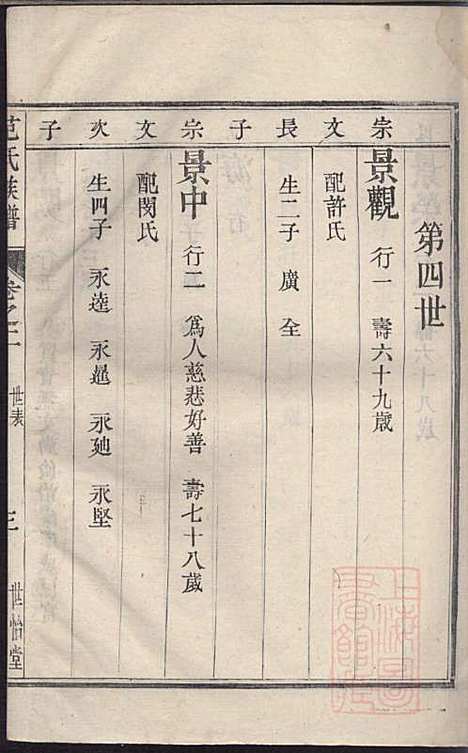 第四世
宗文長子
景觀 行一 壽六十九歲
配許氏
生二子 廣 全
宗文次子
景中 行二 為人慈悲好善 壽七十八歲
配閔氏
生四子 永逵 永暹 永廸 永堅
范氏族譜 卷之二 世表 三 世怡堂